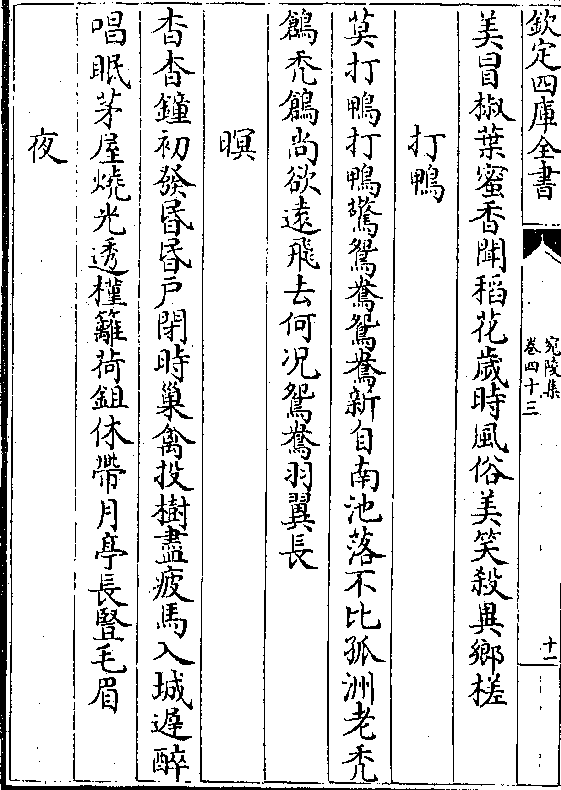 欽定四庫全書
宛陵集
卷四十三
十一
美冒椒葉蜜香聞稻花歲時風俗美笑殺異鄉槎
打鴨
莫打鴨打鴨驚鴛鴦鴛鴦新自南池落不比孤洲老禿
鶬禿鶬尚欲遠飛去何况鴛鴦羽翼長
暝
杳杳鐘初發昏昏户閉時巢禽投樹盡疲馬入城遲醉
唱眠茅屋燒光透槿籬荷鉏休帶月亭長豎毛眉
夜